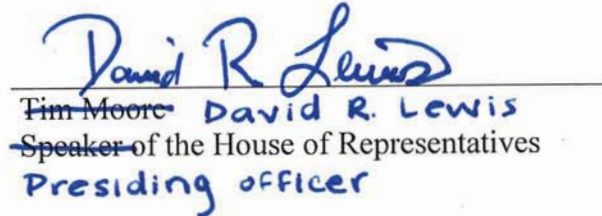 David R. Lewis
Tim Moore David R. Lewis
Speaker of the House of Representatives
Presiding officer